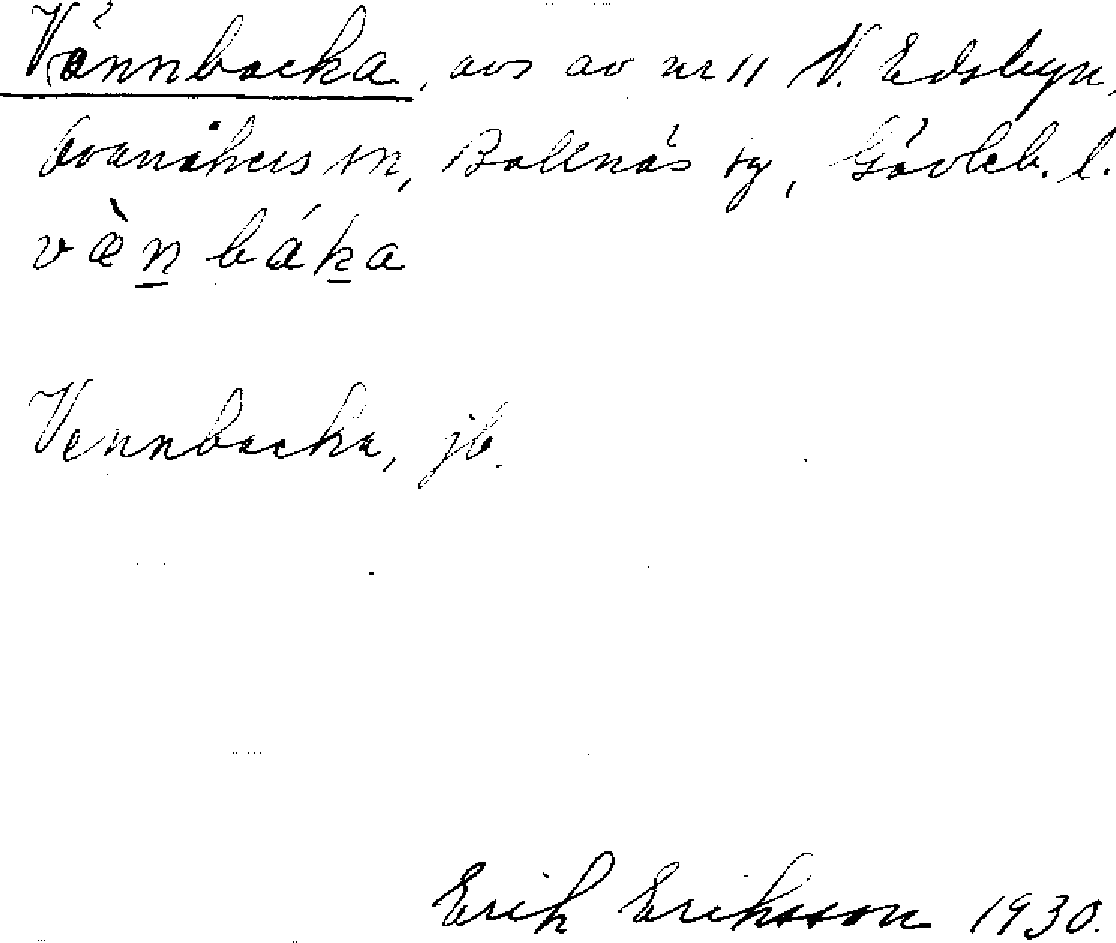 Vännbacka, avs av nr 11 N. Edsbyn,
Ovanåkers sn, Bollnäs tg, Gävleb. l.
v æ̀ n̲ b á k̲ a
Vennbacka, jb.
Erik Eriksson 1930.